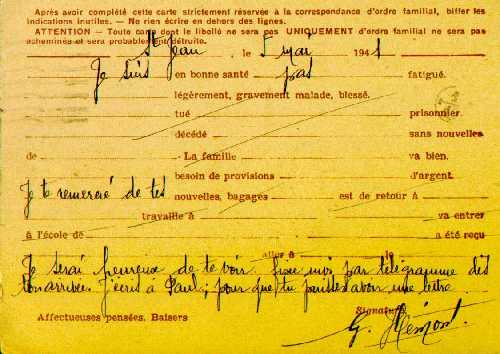 Après avoir complété cette carte strictement réservée à la correspondance d'ordre familial, biffer les
indications inutiles. — Ne rien écrire en dehors des lignes.
ATTENTION - Toute carte dont le libellé ne sera pas UNIQUEMENT d'ordre familial ne sera pas
acheminée et sera probablement détruite.
St Jean le 5 mai 1941
Je suis en bonne santé pas fatigué.
légèrement, gravement malade, blessé.
tué prisonnier.
décédé sans nouvelles
de La famille va bien.
besoin de provisions d'argent.
Je te remercie de tes nouvelles, bagages est de retour à
travaille à va entrer
à l'école de a été reçu
aller à le
Je serai heureux de te voir. moi par télégramme dès
ton arrivée. J'écris à Paul, pour que tu puisses avoir une lettre.
Affectueuses pensées. Baisers Signature
G. Hémont.